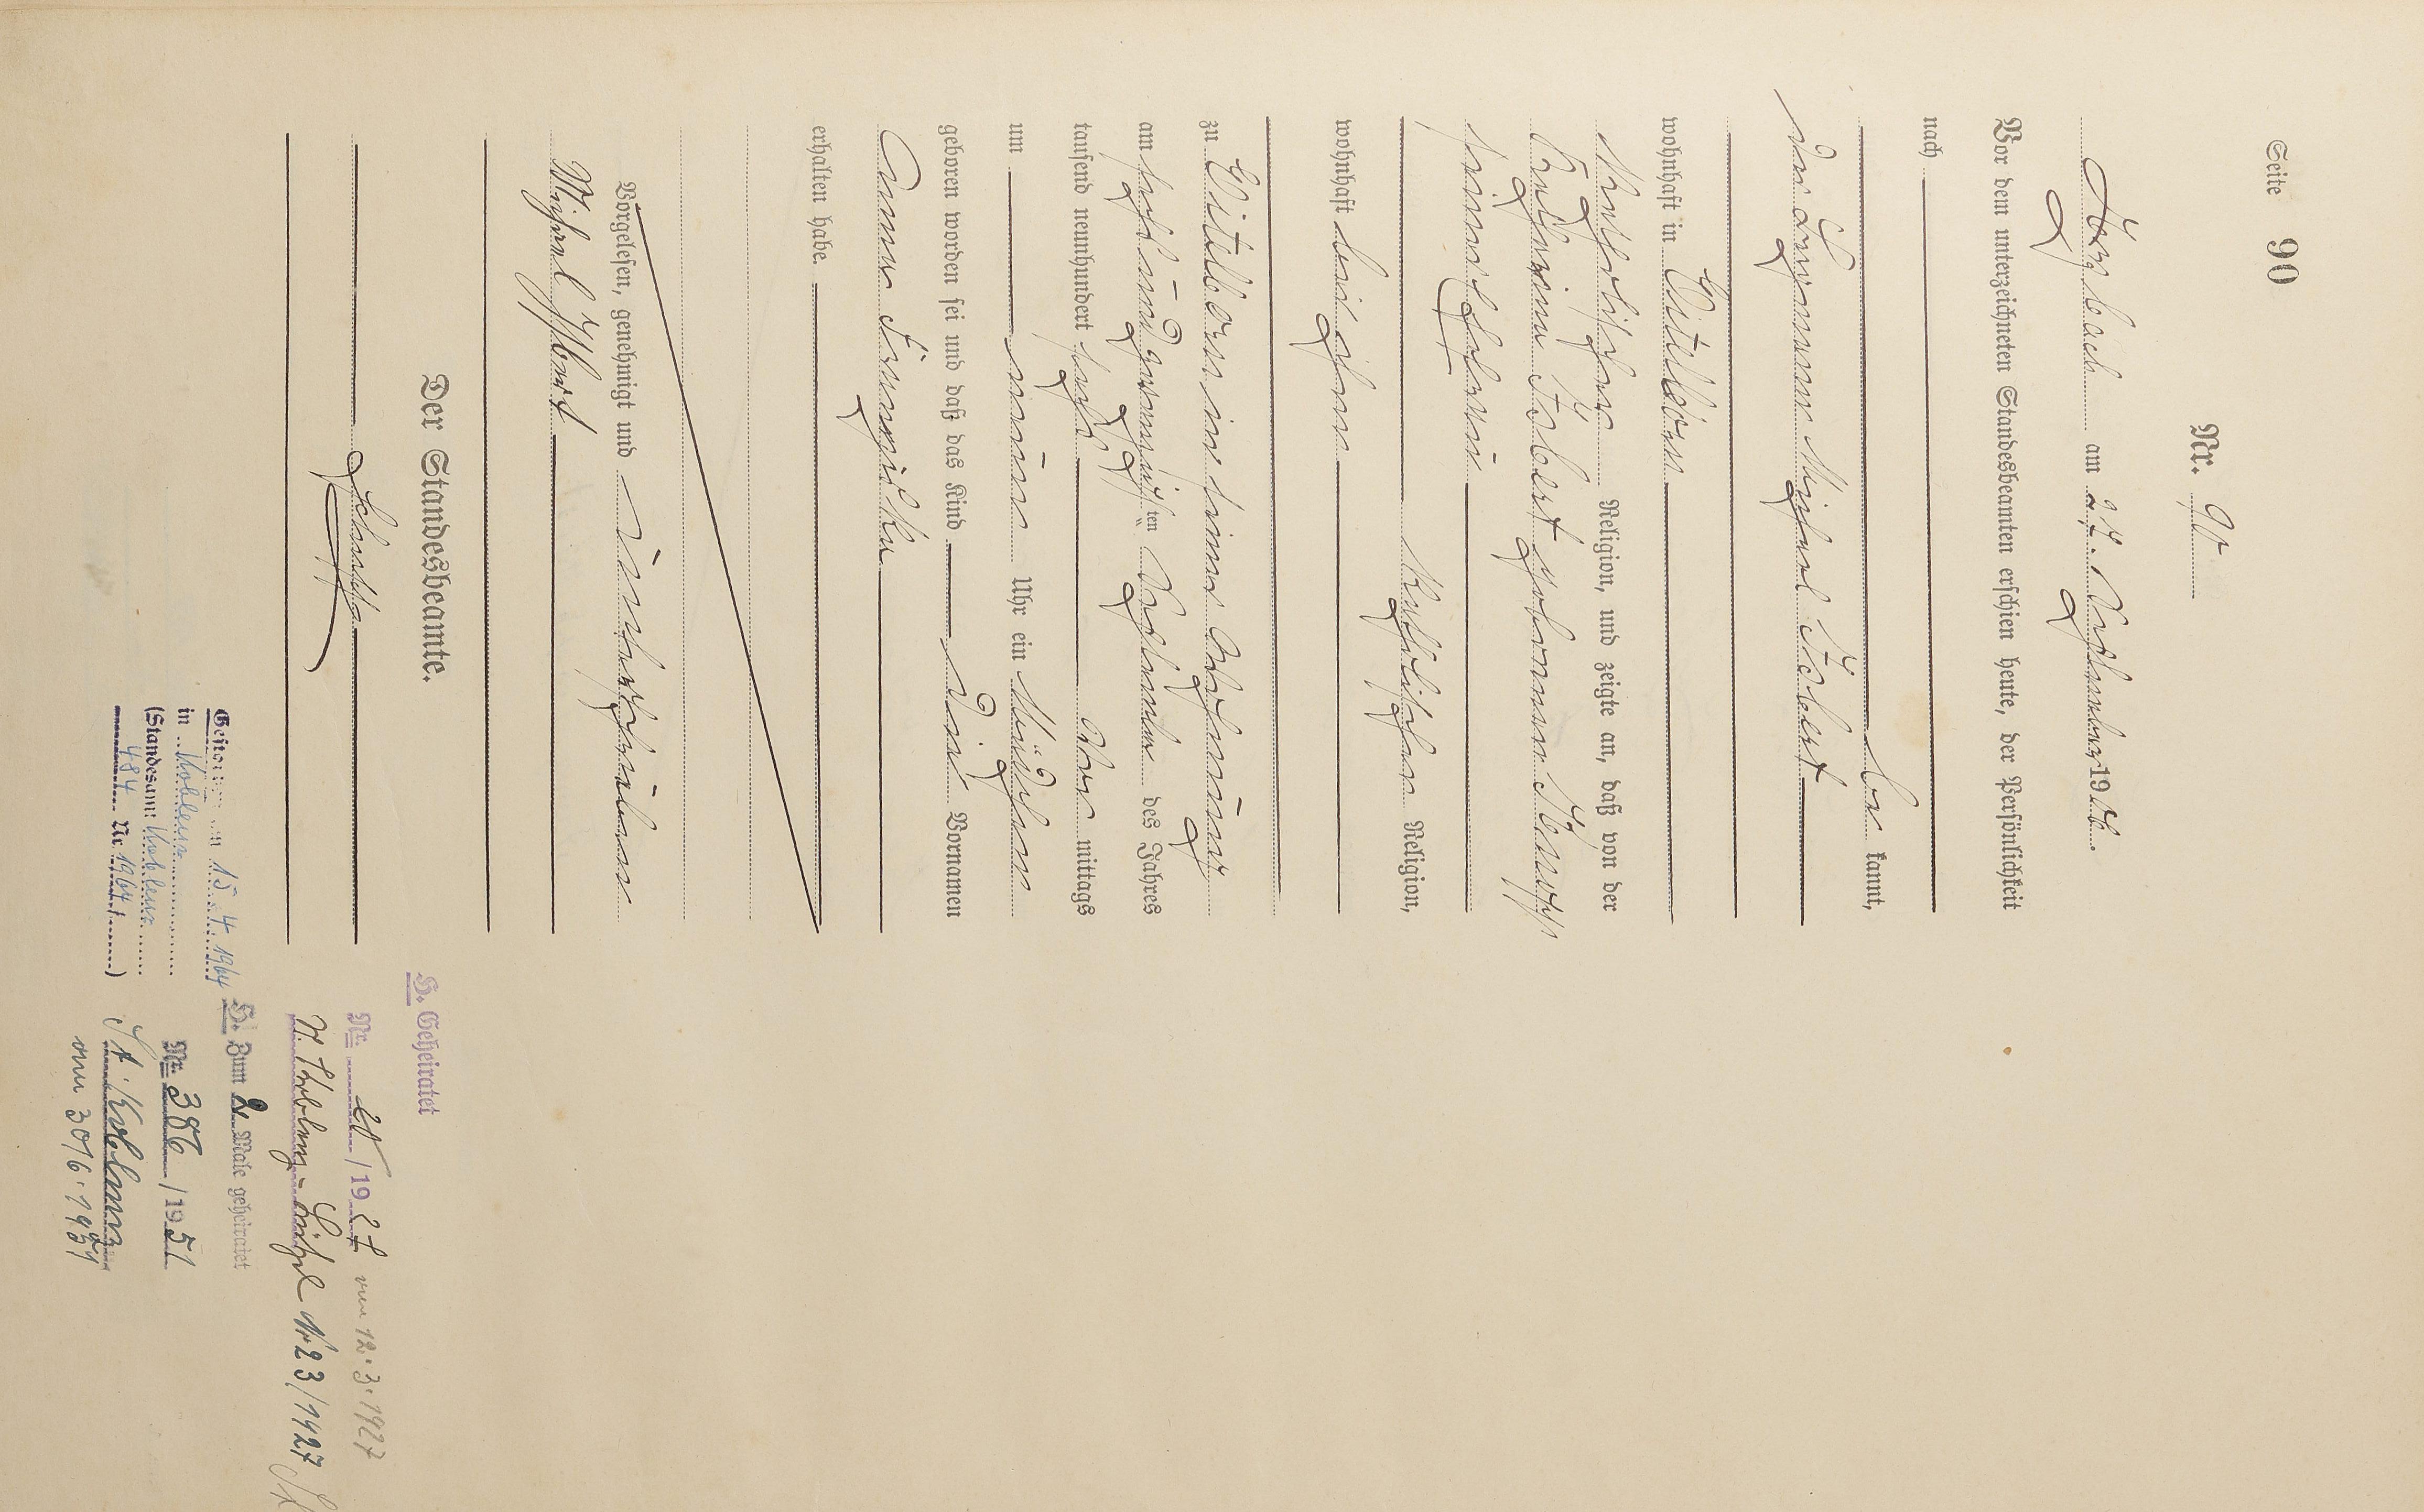 Seite 90
Nr. 90
am 27. September 1906.
Vor dem unterzeichneten Standesbeamten erschien heute, der Persönlichkeit
nach
be kannt,
der Bergmann Michael Ickert
wohnhaft in Eitelborn
katholischer Religion, und zeigte an, daß von der
Katharina Ickert geborenen Knopp
seiner Ehefrau
katholischer Religion,
wohnhaft bei ihm
zu Eitelborn in seiner Wohnung
am sechsundzwanzigsten September des Jahres
tausend neunhundert sechs Vor mittags
um neun Uhr ein Mädchen
geboren worden sei und daß das Kind die Vornamen
Anna
erhalten habe.
Vorgelesen, genehmigt und unterschrieben
Michael
Der Standesbeamte.
H. Geheiratet
Nr. /1927 vom 12.3.1927
Nr 23/1927
H. Zum 2. Male geheiratet
Nr. 386/1951
St. Koblenz
vom 30/6.1951
Gestorben am 15.4.1964
in Koblenz
(Standesamt Koblenz
484 Nr. 1964)